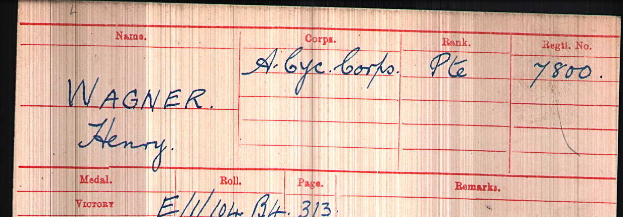 Name. Corps. Rank. Regtl. No.
WAGNER. A. Cyc. Corps. Pte 7800.
Henry.
Medal. Roll. Page. Remarks.
VICTORY E/1/104 B4. 313.